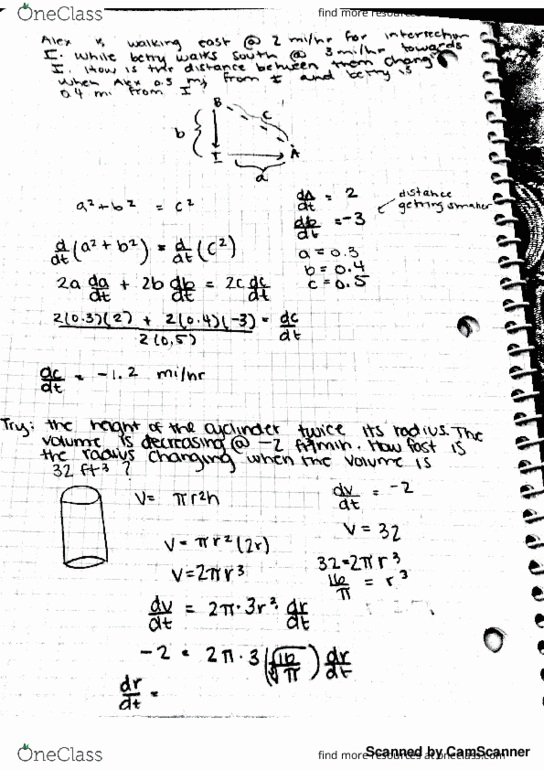 OneClass
find more resources at oneclass.com
Alex is walking east @ 2 mi/hr for intersection
I. While betty walks South @ 3 mi/hr towards
I. How is the distance between them chang
when Alex 0.3 mi from I and betty is
0.4 mi from I
B
c
b
I
A
a
a² + b² = c²
da/dt = 2
distance
getting smaller
db/dt = -3
d/dt (a² + b²) = d/dt (c²)
a = 0.3
b = 0.4
c = 0.5
2a da/dt + 2b db/dt = 2c dc/dt
2(0.3)(2) + 2(0.4)(-3) / 2(0.5) = dc/dt
dc/dt = -1.2 mi/hr
Try: the height of the cylinder twice its radius. The
volume is decreasing @ -2 ft³/min. How fast is
the radius changing when the volume is
32 ft³ ?
V = πr²h
dv/dt = -2
V = 32
V = πr²(2r)
32 = 2πr³
V = 2πr³
16/π = r³
dv/dt = 2π·3r² dr/dt
-2 = 2π·3(∛16/π) dr/dt
dr/dt =
OneClass
find more resources at oneclass.com
Scanned by CamScanner